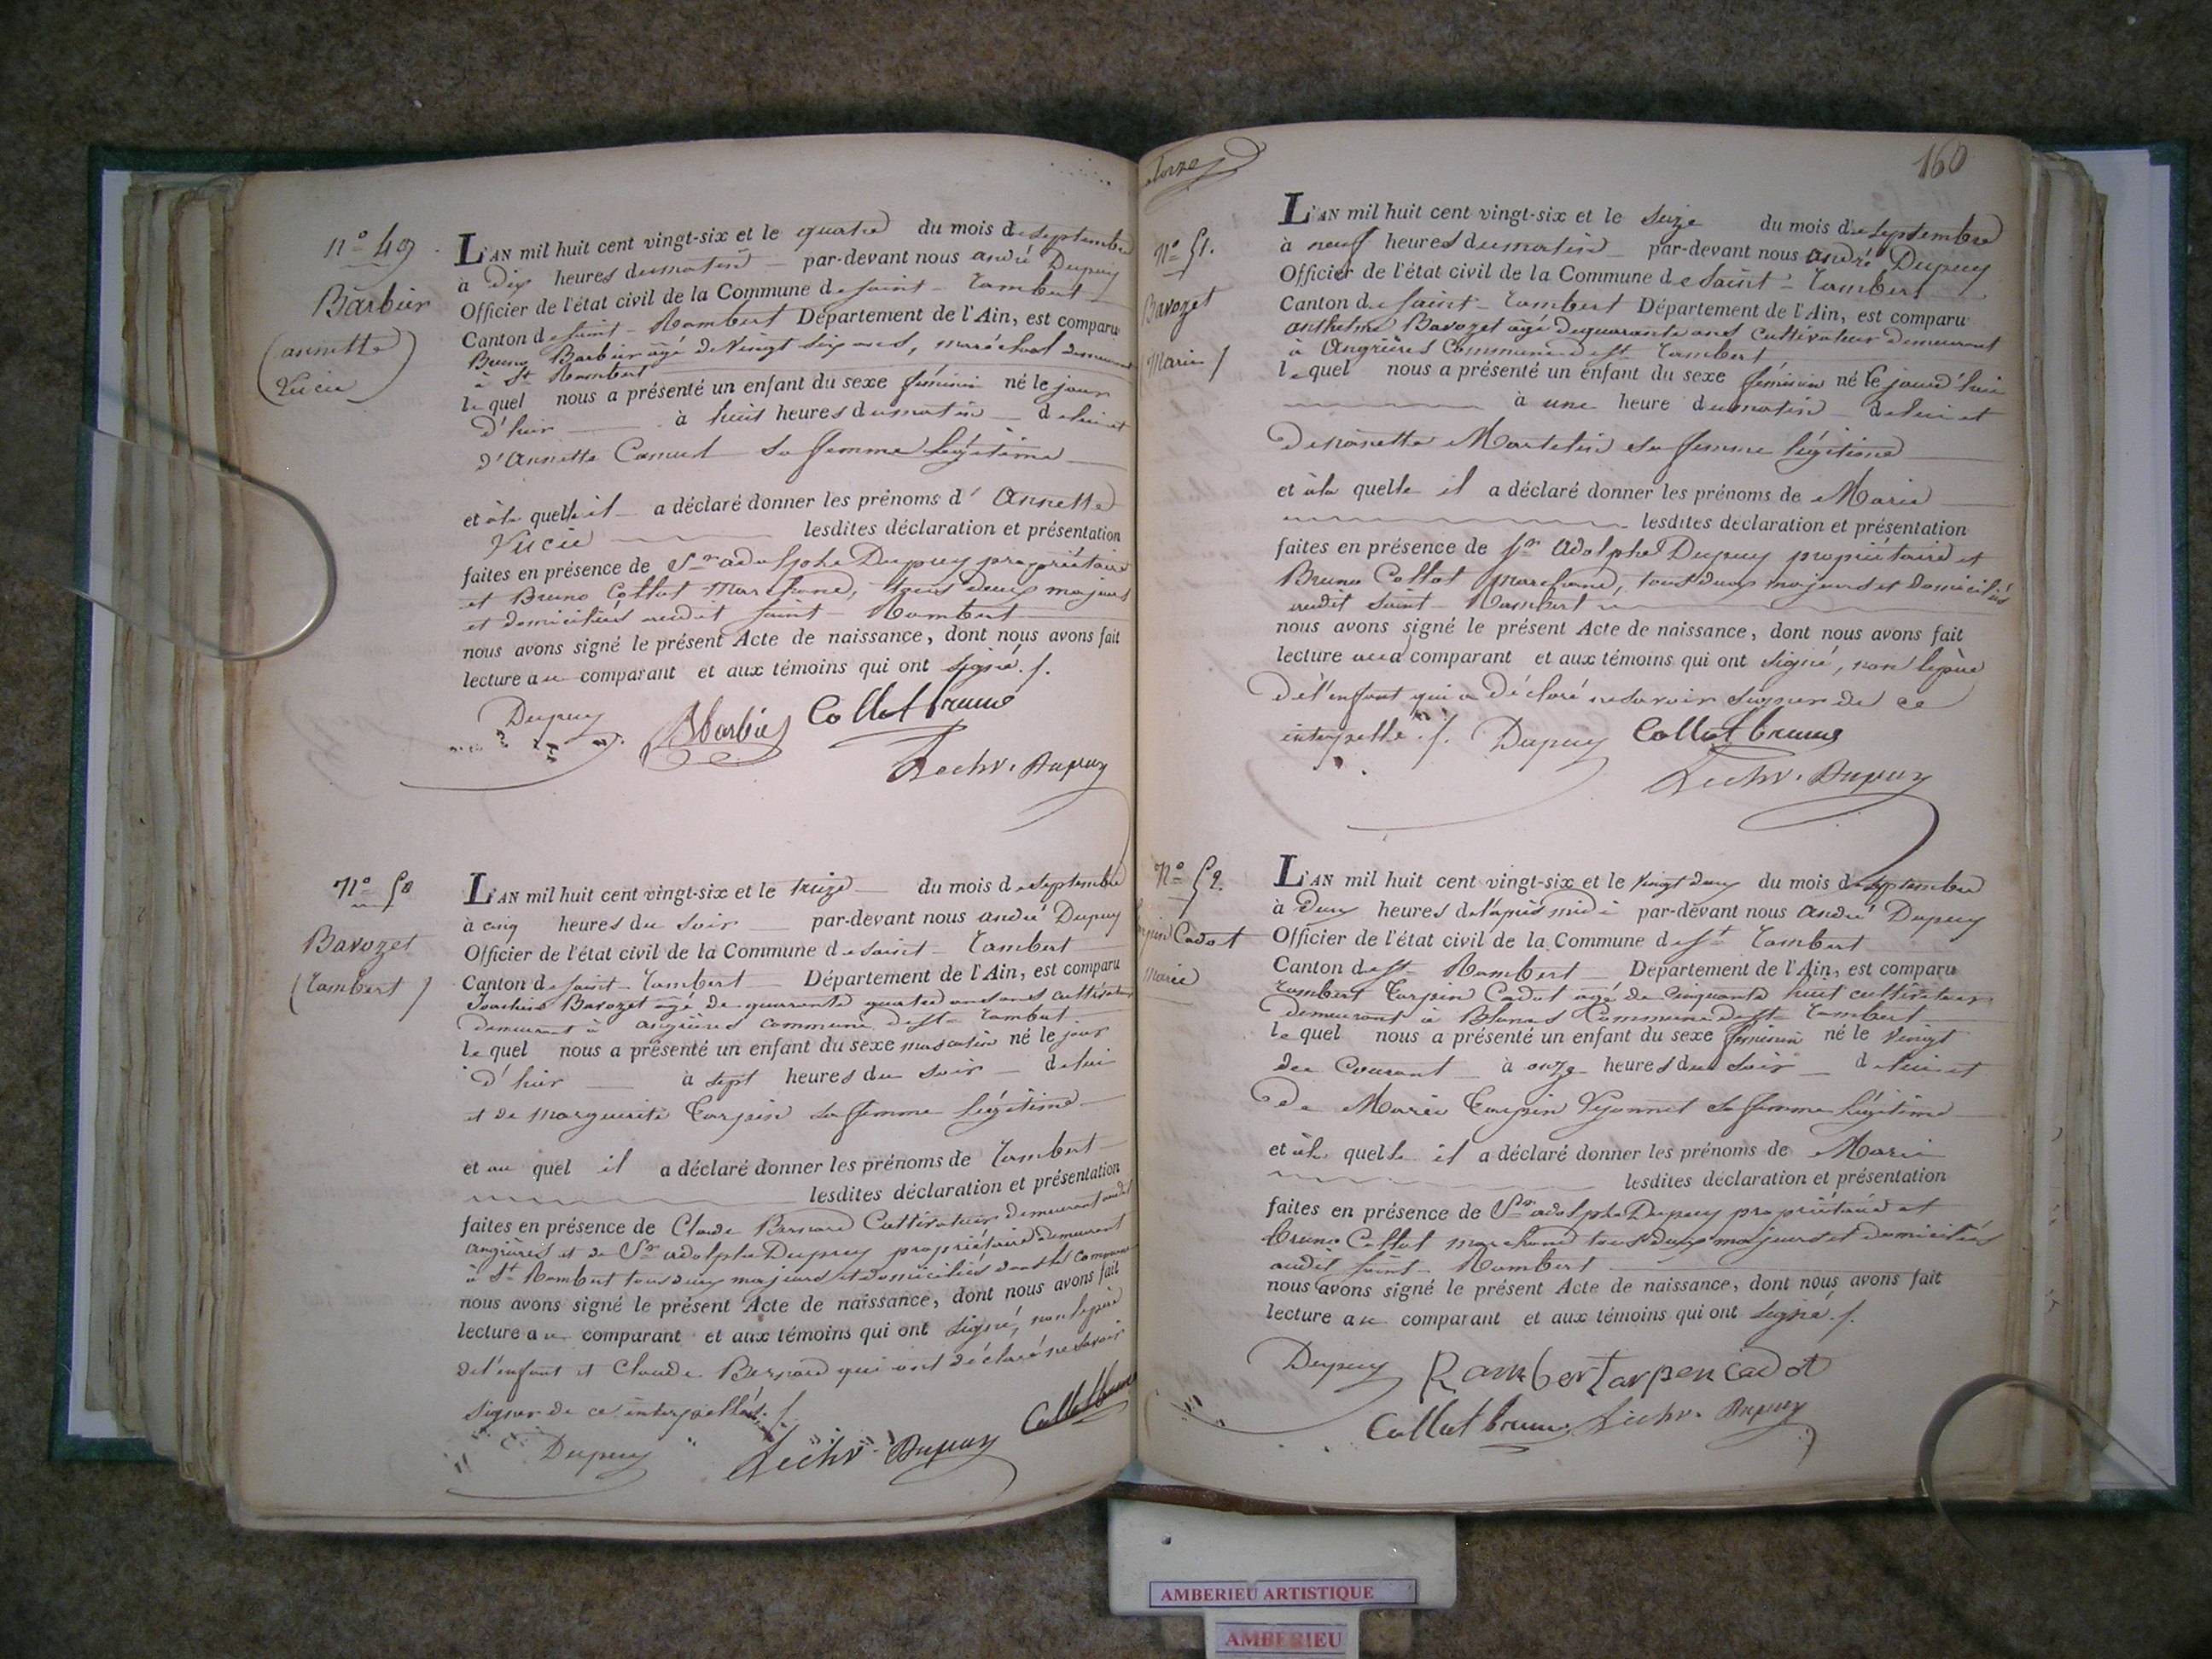 n.º 49
Barbier
(annette
Lucie)
L'AN mil huit cent vingt-six et le quatre du mois de septembre
à dix heures du matin par-devant nous andré Dupuy
Officier de l'état civil de la Commune de saint-Rambert
Canton de saint-Rambert Département de l'Ain, est comparu
Bruno Barbier âgé de vingt six ans, maréchal demeurant
à St Rambert
lequel nous a présenté un enfant du sexe féminin né le jour
d'hier à huit heures du matin de lui et
d'Annette Camus sa femme légitime
et à la quelle il a déclaré donner les prénoms d'Annette
Lucie lesdites déclaration et présentation
faites en présence de Sr adolphe Dupuy propriétaire
et Bruno Collot marchand, tous deux majeurs
et domiciliés audit saint-Rambert
nous avons signé le présent Acte de naissance, dont nous avons fait
lecture au comparant et aux témoins qui ont signé ./.
Dupuy BBarbier Collot bruno
Dupuy
n.º 50
Bavozet
(Rambert)
L'AN mil huit cent vingt-six et le treize du mois de septembre
à cinq heures du soir par-devant nous andré Dupuy
Officier de l'état civil de la Commune de saint-Rambert
Canton de saint-Rambert Département de l'Ain, est comparu
Joachim Bavozet âgé de quarante quatre ans ans cultivateur
demeurant à angrières commune de St Rambert
lequel nous a présenté un enfant du sexe masculin né le jour
d'hier à sept heures du soir de lui
et de marguerite Tarpin sa femme légitime
et au quel il a déclaré donner les prénoms de Rambert
lesdites déclaration et présentation
faites en présence de Claude Bernard Cultivateur demeurant audit
angrières et de Sr adolphe Dupuy propriétaire demeurant
à St Rambert tous deux majeurs et domiciliés dans la commune
nous avons signé le présent Acte de naissance, dont nous avons fait
lecture au comparant et aux témoins qui ont signé, non le père
de l'enfant et Claude Bernard qui ont déclaré ne savoir
signer de ce interpellés ./.
Dupuy Dupuy Collot bruno
160
n.º 51.
Bavozet
(Marie)
L'AN mil huit cent vingt-six et le seize du mois de septembre
à neuf heures du matin par-devant nous andré Dupuy
Officier de l'état civil de la Commune de Saint-Rambert
Canton de saint-Rambert Département de l'Ain, est comparu
anthelme Bavozet âgé de quarante ans cultivateur demeurant
à Angrières Commune de St Rambert
lequel nous a présenté un enfant du sexe féminin né le jourd'hui
à une heure du matin de lui et
de nanette Martelin sa femme légitime
et à la quelle il a déclaré donner les prénoms de Marie
lesdites déclaration et présentation
faites en présence de Sr Adolphe Dupuy propriétaire et
Bruno Collot marchand, tous deux majeurs et domiciliés
audit saint-Rambert
nous avons signé le présent Acte de naissance, dont nous avons fait
lecture au comparant et aux témoins qui ont signé, non le père
de l'enfant qui a déclaré ne savoir signer de ce
interpellé ./. Dupuy Collot bruno
Dupuy
n.º 52.
Cadot
Marie
L'AN mil huit cent vingt-six et le vingt deux du mois de septembre
à deux heures de l'après midi par-devant nous andré Dupuy
Officier de l'état civil de la Commune de St Rambert
Canton de St Rambert Département de l'Ain, est comparu
Rambert Tarpin Cadot âgé de cinquante huit cultivateur
demeurant à Blanas Commune de St Rambert
lequel nous a présenté un enfant du sexe féminin né le vingt
du Courant à onze heures du soir de lui et
de Marie Tarpin sa femme légitime
et à la quelle il a déclaré donner les prénoms de Marie
lesdites déclaration et présentation
faites en présence de Sr adolphe Dupuy propriétaire et
bruno Collot marchand tous deux majeurs et domiciliés
audit saint-Rambert
nous avons signé le présent Acte de naissance, dont nous avons fait
lecture au comparant et aux témoins qui ont signé ./.
Dupuy Rambertarpencadot
Collot bruno Dupuy
AMBERIEU ARTISTIQUE
AMBERIEU